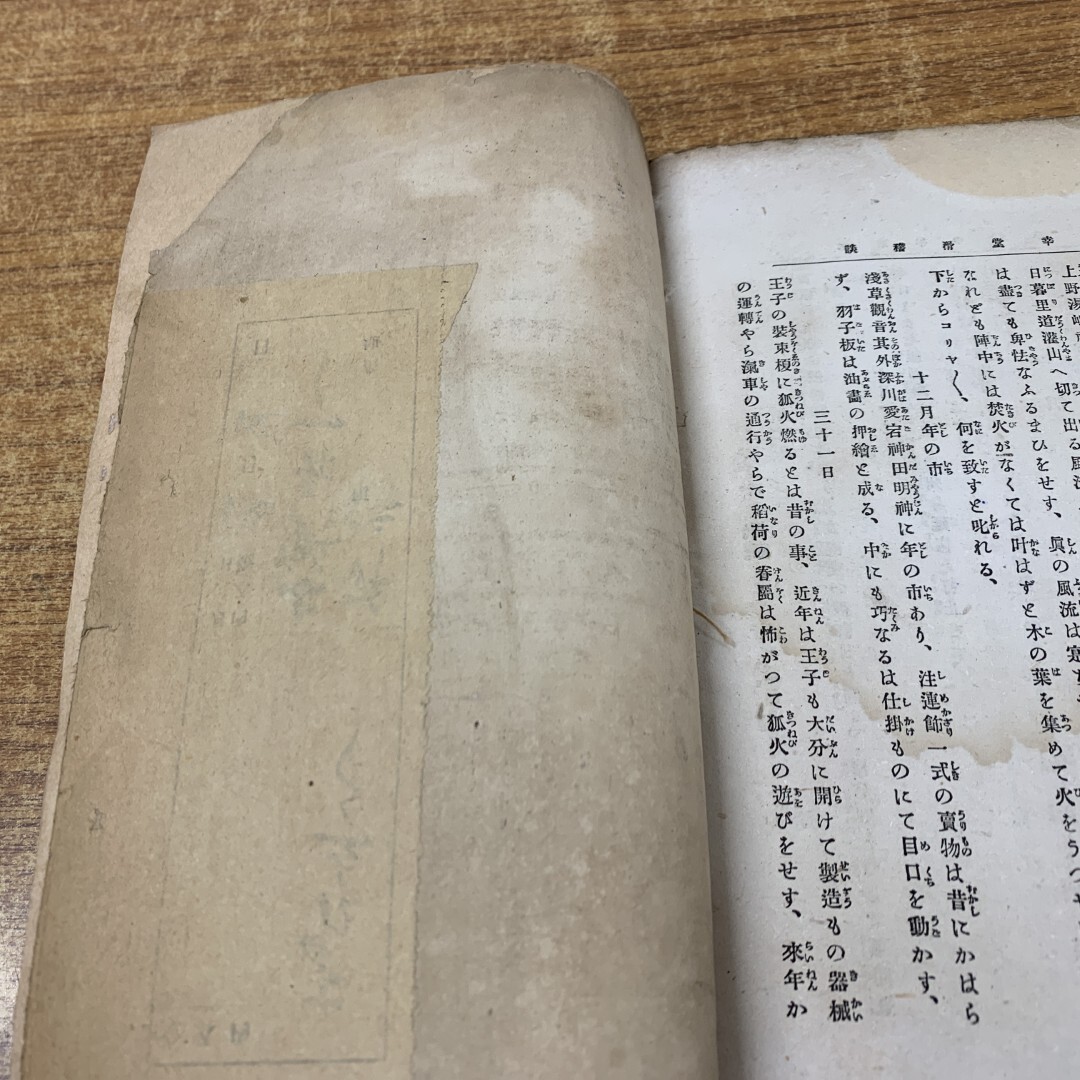 幸堂滑稽談
上野
日暮里道灌山へ切て出る風流
は盡ても卑怯なふるまひをせす、眞の風流は
なれども陣中には焚火がなくては叶はずと木の葉を集めて火をうつ
下からコリヤ〱、何を致すと叱れる、
十二月年の市
淺草觀音其外深川愛宕神田明神に年の市あり、注連飾一式の賣物は昔にかはら
ず、羽子板は油畫の押繪と成る、中にも巧なるは仕掛ものにて目口を動かす、
三十一日
王子の裝束榎に狐火燃るとは昔の事、近年は王子も大分に開けて製造もの器械
の運轉やら滊車の通行やらで稻荷の眷屬は怖がつて狐火の遊びをせす、來年か